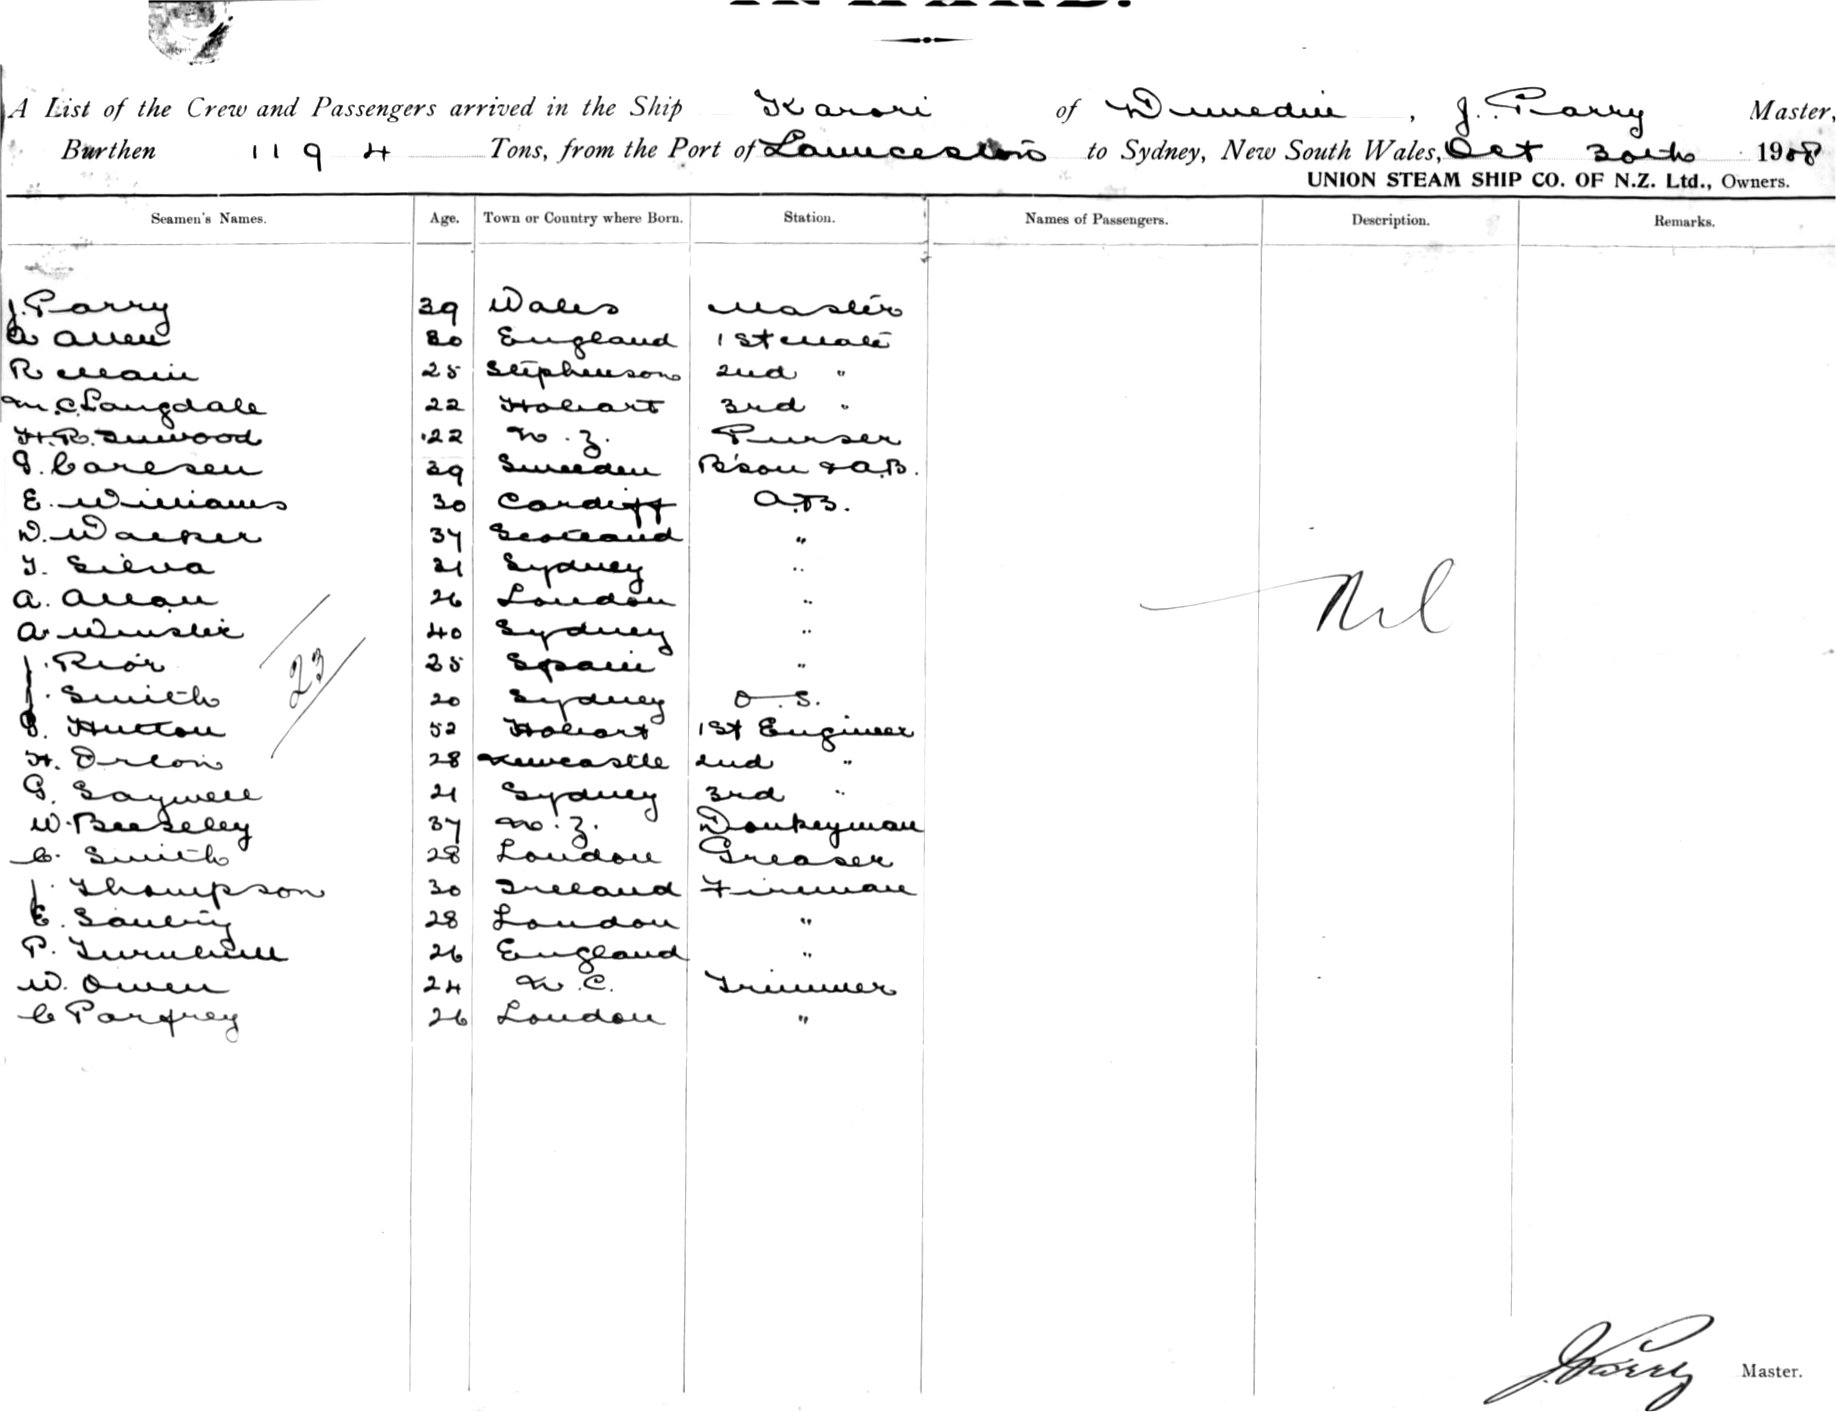 A List of the Crew and Passengers arrived in the Ship Karori of Dunedin, J. Parry Master,
Burthen 1194 Tons, from the Port of Launceston to Sydney, New South Wales, Oct 30th 1908
UNION STEAM SHIP CO. OF N.Z. Ltd., Owners.
Seamen's Names. Age. Town or Country where Born. Station. Names of Passengers. Description. Remarks.
J. Parry 39 Wales Master
A Allen 30 England 1st Mate
R Main 25 Stephenson 2nd "
M.C. Langdale 22 Hobart 3rd "
H.R. Inwood 22 N.Z. Purser
G. Carlsen 39 Sweeden B'son & A.B.
E. Williams 30 Cardiff A.B.
D. Walker 37 Scotland "
T. Silva 21 Sydney "
A. Allan 26 London "
A. Winslie 40 Sydney "
J. Rior 25 Spain "
23
J. Smith 20 Sydney O.S.
G. Hutton 52 Hobart 1st Engineer
H. Orlon 28 Newcastle 2nd "
G. Saywell 21 Sydney 3rd "
W. Beeseley 37 N.Z. Donkeyman
C. Smith 28 London Greaser
J. Thompson 30 Ireland Fireman
E. 28 London "
P. Turnbull 26 England "
W. Owen 24 N.C. Trimmer
C Parfrey 26 London "
Nil
J. Parry Master.